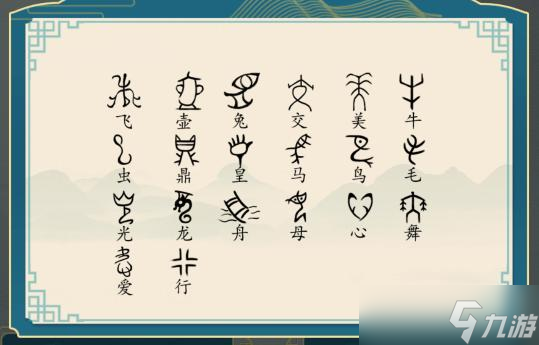 飞 壶 兔 交 美 牛
虫 鼎 皇 马 鸟 毛
光 龙 舟 母 心 舞
爱 行
九游